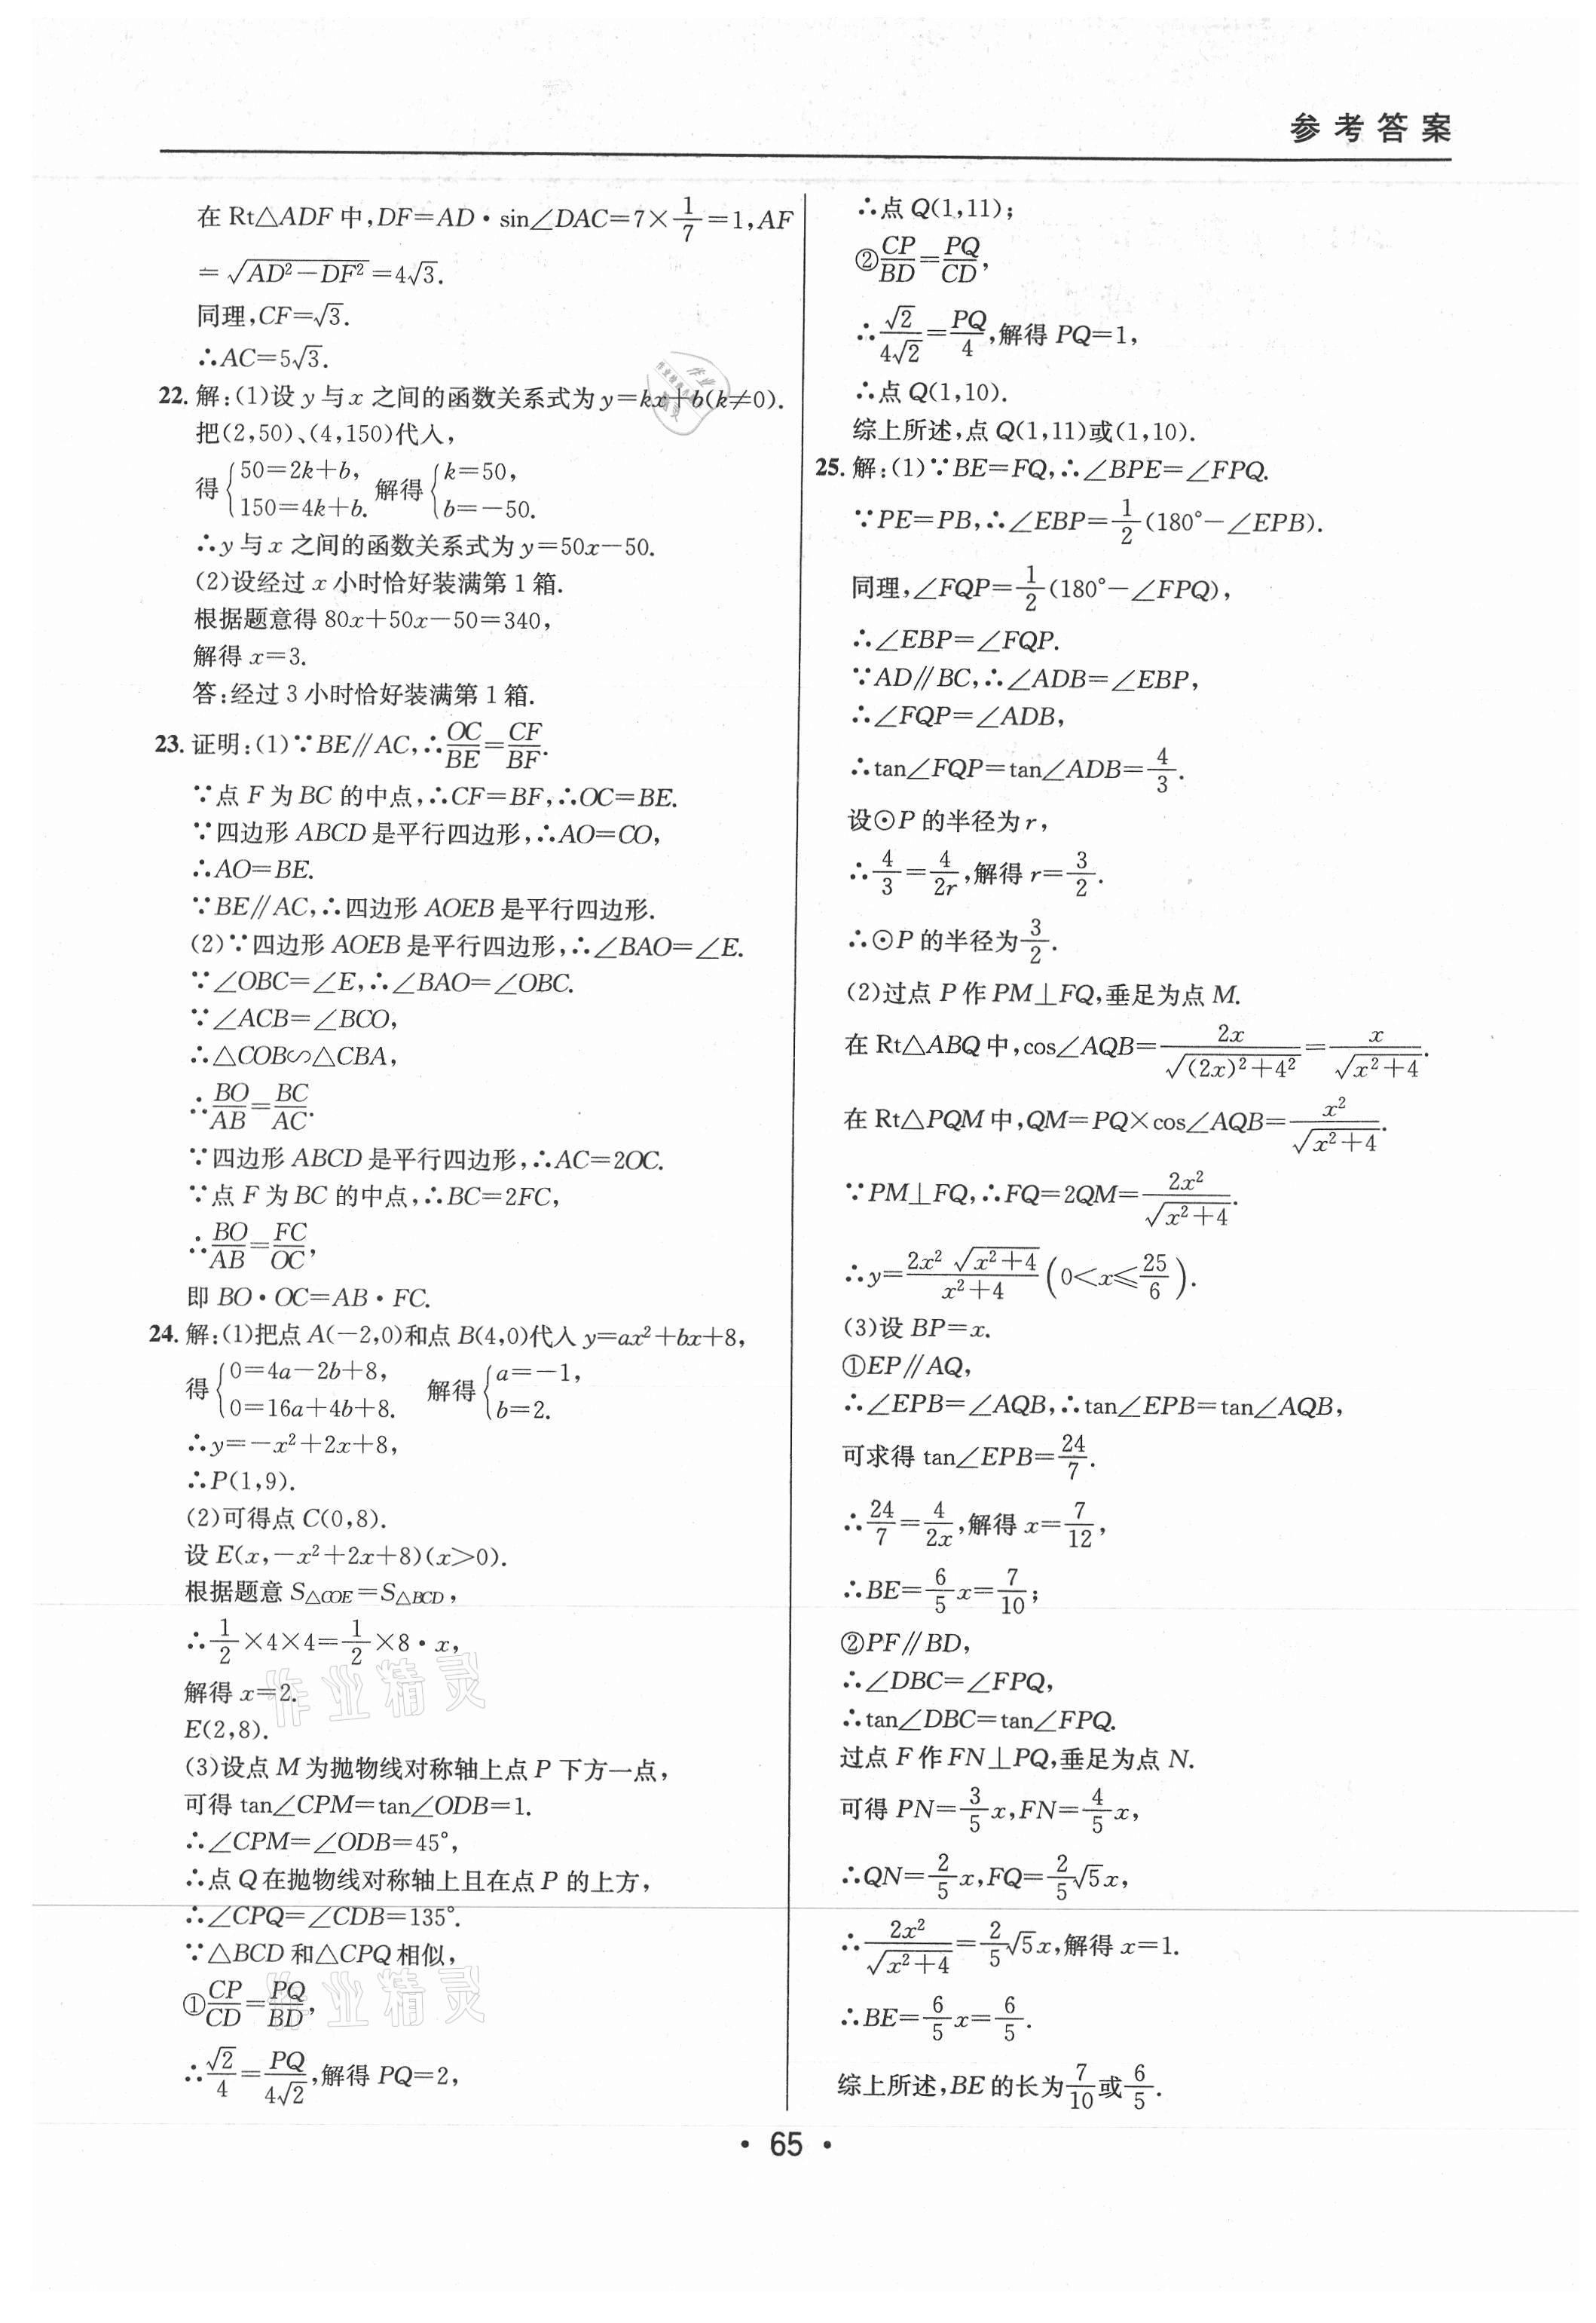 参考答案
在 Rt△ADF 中,DF=AD·sin∠DAC=7×1/7=1,AF
=√(AD²−DF²)=4√3.
同理,CF=√3.
∴AC=5√3.
22. 解:(1)设 y 与 x 之间的函数关系式为 y=kx+b(k≠0).
把(2,50)、(4,150)代入,
得{50=2k+b, 150=4k+b. 解得{k=50, b=−50.
∴y 与 x 之间的函数关系式为 y=50x−50.
(2)设经过 x 小时恰好装满第 1 箱.
根据题意得 80x+50x−50=340,
解得 x=3.
答:经过 3 小时恰好装满第 1 箱.
23. 证明:(1)∵BE∥AC,∴OC/BE=CF/BF.
∵点 F 为 BC 的中点,∴CF=BF,∴OC=BE.
∵四边形 ABCD 是平行四边形,∴AO=CO,
∴AO=BE.
∵BE∥AC,∴四边形 AOEB 是平行四边形.
(2)∵四边形 AOEB 是平行四边形,∴∠BAO=∠E.
∵∠OBC=∠E,∴∠BAO=∠OBC.
∵∠ACB=∠BCO,
∴△COB∽△CBA,
∴BO/AB=BC/AC.
∵四边形 ABCD 是平行四边形,∴AC=2OC.
∵点 F 为 BC 的中点,∴BC=2FC,
∴BO/AB=FC/OC,
即 BO·OC=AB·FC.
24. 解:(1)把点 A(−2,0)和点 B(4,0)代入 y=ax²+bx+8,
得{0=4a−2b+8, 0=16a+4b+8. 解得{a=−1, b=2.
∴y=−x²+2x+8,
∴P(1,9).
(2)可得点 C(0,8).
设 E(x,−x²+2x+8)(x>0).
根据题意 S△COE=S△BCD,
∴1/2×4×4=1/2×8·x,
解得 x=2.
E(2,8).
(3)设点 M 为抛物线对称轴上点 P 下方一点,
可得 tan∠CPM=tan∠ODB=1.
∴∠CPM=∠ODB=45°,
∴点 Q 在抛物线对称轴上且在点 P 的上方,
∴∠CPQ=∠CDB=135°.
∵△BCD 和△CPQ 相似,
①CP/CD=PQ/BD,
∴√2/4=PQ/4√2,解得 PQ=2,
∴点 Q(1,11);
②CP/BD=PQ/CD,
∴√2/4√2=PQ/4,解得 PQ=1,
∴点 Q(1,10).
综上所述,点 Q(1,11)或(1,10).
25. 解:(1)∵BE=FQ,∴∠BPE=∠FPQ.
∵PE=PB,∴∠EBP=1/2(180°−∠EPB).
同理,∠FQP=1/2(180°−∠FPQ),
∴∠EBP=∠FQP.
∵AD∥BC,∴∠ADB=∠EBP,
∴∠FQP=∠ADB,
∴tan∠FQP=tan∠ADB=4/3.
设⊙P 的半径为 r,
∴4/3=4/2r,解得 r=3/2.
∴⊙P 的半径为3/2.
(2)过点 P 作 PM⊥FQ,垂足为点 M.
在 Rt△ABQ 中,cos∠AQB=2x/√((2x)²+4²)=x/√(x²+4).
在 Rt△PQM 中,QM=PQ×cos∠AQB=x²/√(x²+4).
∵PM⊥FQ,∴FQ=2QM=2x²/√(x²+4).
∴y=2x²√(x²+4)/(x²+4)(0<x≤25/6).
(3)设 BP=x.
①EP∥AQ,
∴∠EPB=∠AQB,∴tan∠EPB=tan∠AQB,
可求得 tan∠EPB=24/7.
∴24/7=4/2x,解得 x=7/12,
∴BE=6/5x=7/10;
②PF∥BD,
∴∠DBC=∠FPQ,
∴tan∠DBC=tan∠FPQ.
过点 F 作 FN⊥PQ,垂足为点 N.
可得 PN=3/5x,FN=4/5x,
∴QN=2/5x,FQ=2/5√5x,
∴2x²/√(x²+4)=2/5√5x,解得 x=1.
∴BE=6/5x=6/5.
综上所述,BE 的长为7/10或6/5.
作业精灵
作业精灵
· 65 ·